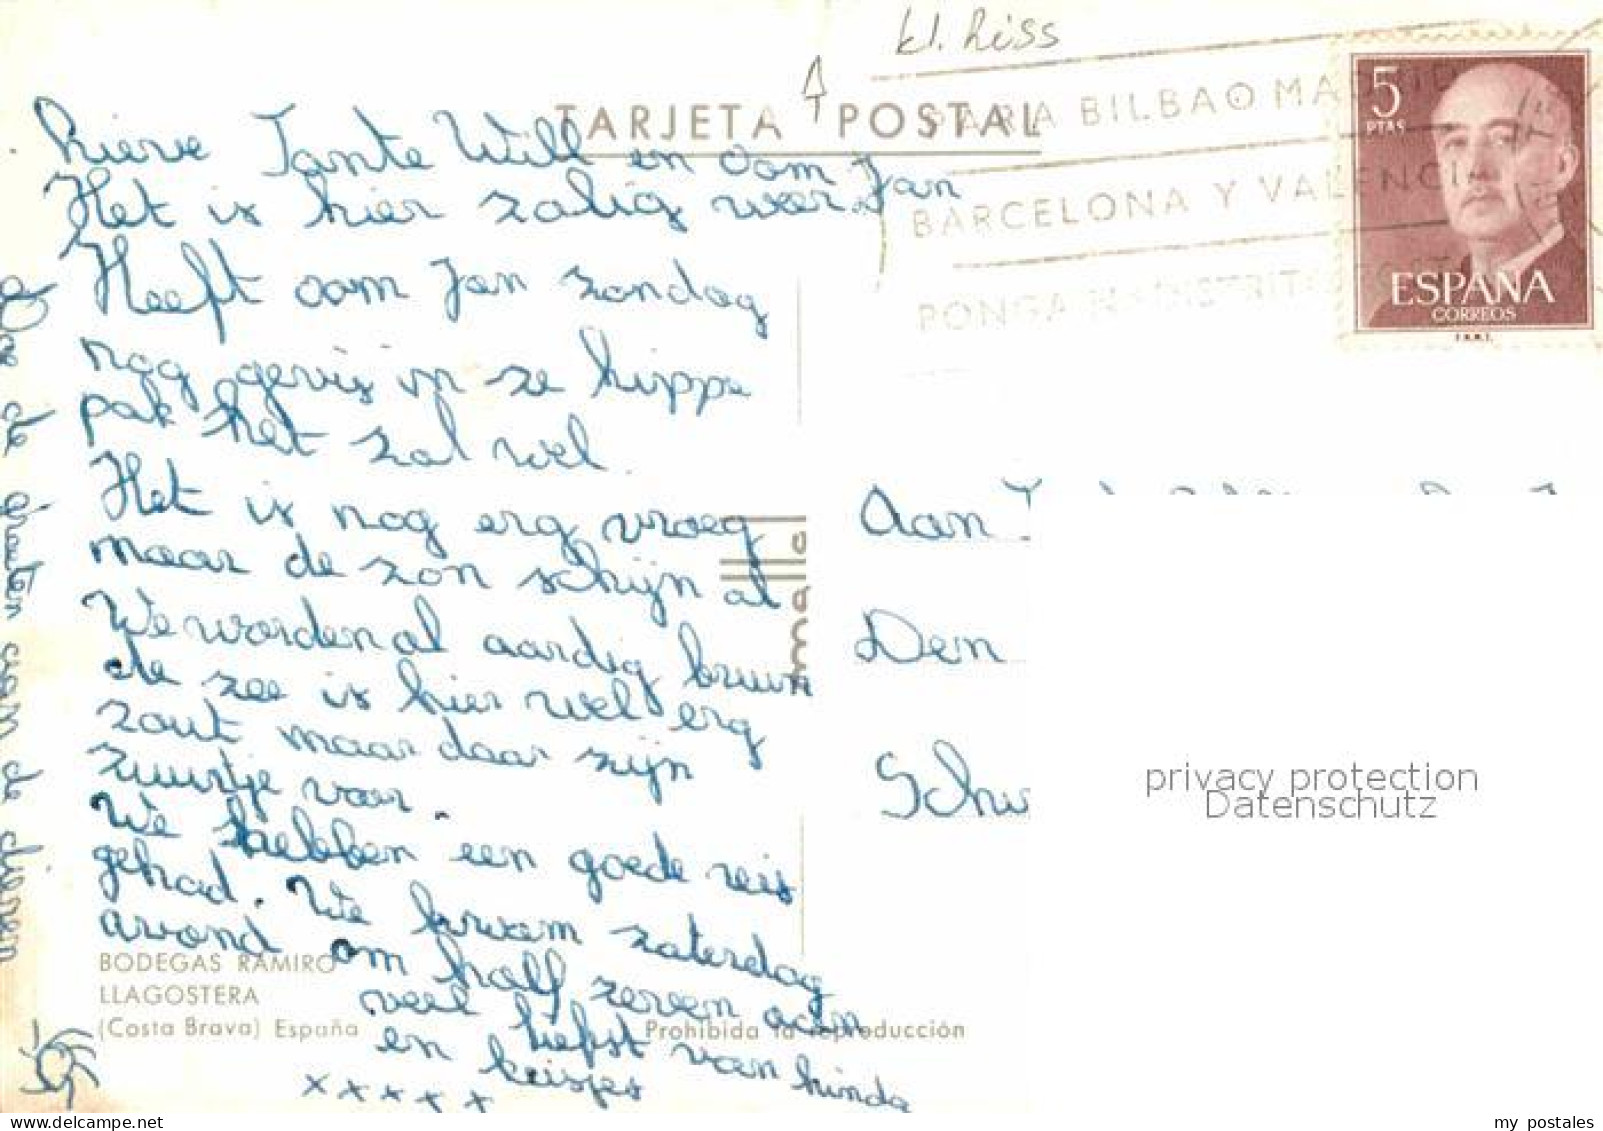 kl. Riss
TARJETA POSTAL
PARA BILBAO MADRID
BARCELONA Y VALENCIA
PONGA
5
PTAS
ESPAÑA
CORREOS
F.N.M.T.
Lieve Tante Will en oom Jan
Het is hier zalig weer.
Heeft oom Jan zondag
nog gevist in ze hippe
pak het zal wel.
Het is nog erg vroeg
maar de zon schijn al
We worden al aardig bruin
de zee is hier wel erg
zout maar daar zijn
zuurtje voor.
We hebben een goede reis
gehad. We kwam zaterdag
avond om half zeven aan
veel liefst van Linda
en keisjes
x x x x x
Doe de groeten aan de
Aan
Den
Schw
mallol
BODEGAS RAMIRO
LLAGOSTERA
(Costa Brava) España
Prohibida la reproducción
privacy protection
Datenschutz
my postales
www.delcampe.net